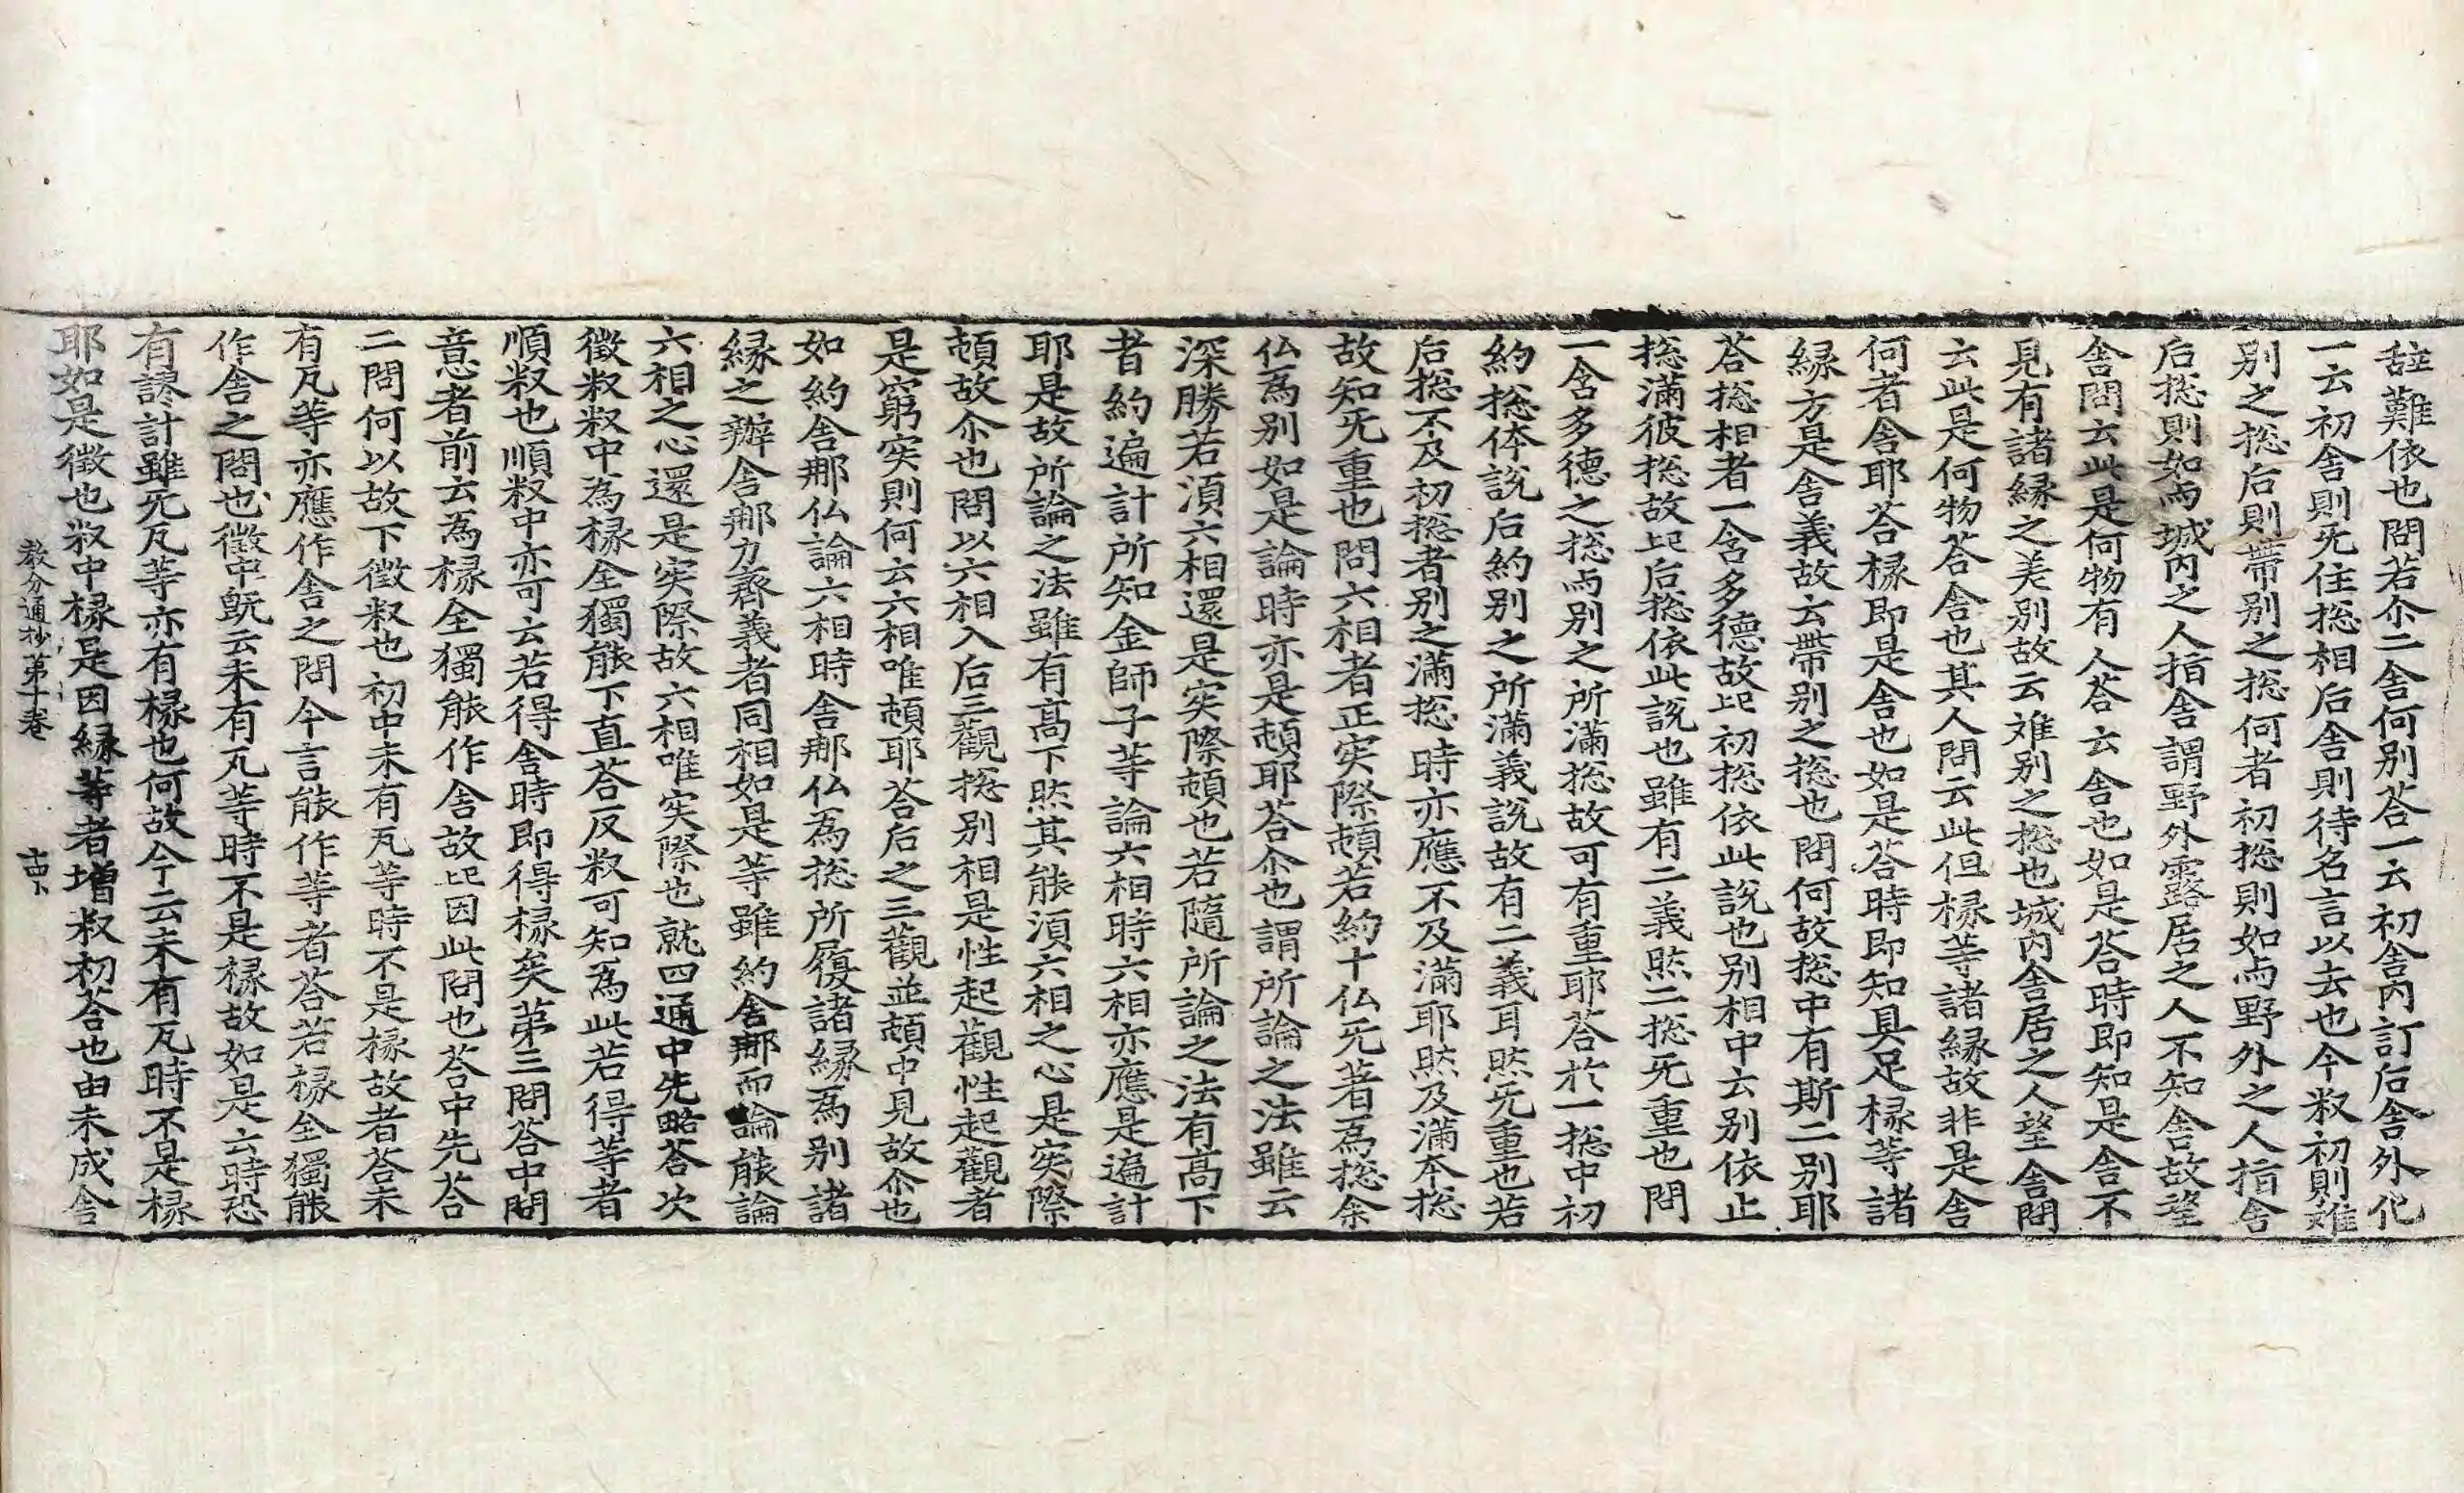 辞難依也問若尒二舎何别荅一云初舎內訂后舎外化
一云初舎則旡住揔相后舎則待名言以去也今釈初則难
别之揔后則帶别之揔何者初揔則如向野外之人指舎
后揔則如向城內之人指舎謂野外露居之人不知舎故望
舎問云此是何物有人荅云舎也如是荅時即知是舎不
見有諸縁之差别故云难别之揔也城內舎居之人望舎問
云此是何物荅舎也其人問云此但椽等諸縁故非是舎
何者舎耶荅椽即是舎也如是荅時即知具足椽等諸
縁方是舎義故云帶别之揔也問何故揔中有斯二别耶
荅揔相者一含多德故記初揔依此説也别相中云别依止
揔滿彼揔故記后揔依此説也雖有二義然二揔旡重也問
一含多德之揔向别之所滿揔故可有重耶荅於一揔中初
約揔体説后約别之所滿義説故有二義耳然旡重也若
后揔不及初揔者别之滿揔時亦應不及滿耶然及滿本揔
故知旡重也問六相者正实際頓若約十仏旡著為揔余
仏為别如是論時亦是頓耶荅尒也謂所論之法雖云
深勝若湏六相還是实際頓也若隨所論之法有高下
者約遍計所知金師子等論六相時六相亦應是遍計
耶是故所論之法雖有高下然其能湏六相之心是实際
頓故尒也問以六相入后三觀揔别相是性起觀性起觀者
是窮实則何云六相唯頓耶荅后之三觀並頓中見故尒也
如約舎那仏論六相時舎那仏為揔所履諸縁為别諸
縁之辦舎那力齊義者同相如是等雖約舎那而論能論
六相之心還是实際故六相唯实際也就四通中先略荅次
徵釈釈中為椽全獨能下直荅反釈可知為此若得等者
順釈也順釈中亦可云若得舎時即得椽矣第三問荅中問
意者前云為椽全獨能作舎故記因此問也荅中先荅
二問何以故下徵釈也初中未有瓦等時不是椽故者荅未
有瓦等亦應作舎之問今言能作等者荅若椽全獨能
作舎之問也徵中旣云未有瓦等時不是椽故如是云時恐
有謬計雖旡瓦等亦有椽也何故今云未有瓦時不是椽
耶如是徵也釈中椽是因縁等者增釈初荅也由未成舎
教分通抄第十卷　十四卜